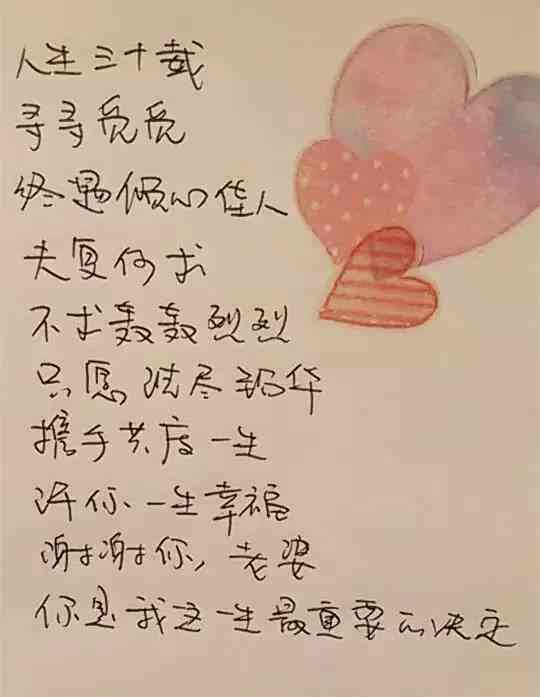 人生三十载
寻寻觅觅
终遇倾心佳人
夫复何求
不求轰轰烈烈
只愿洗尽铅华
携手共度一生
许你一生幸福
谢谢你，老婆
你是我这一生最重要的决定